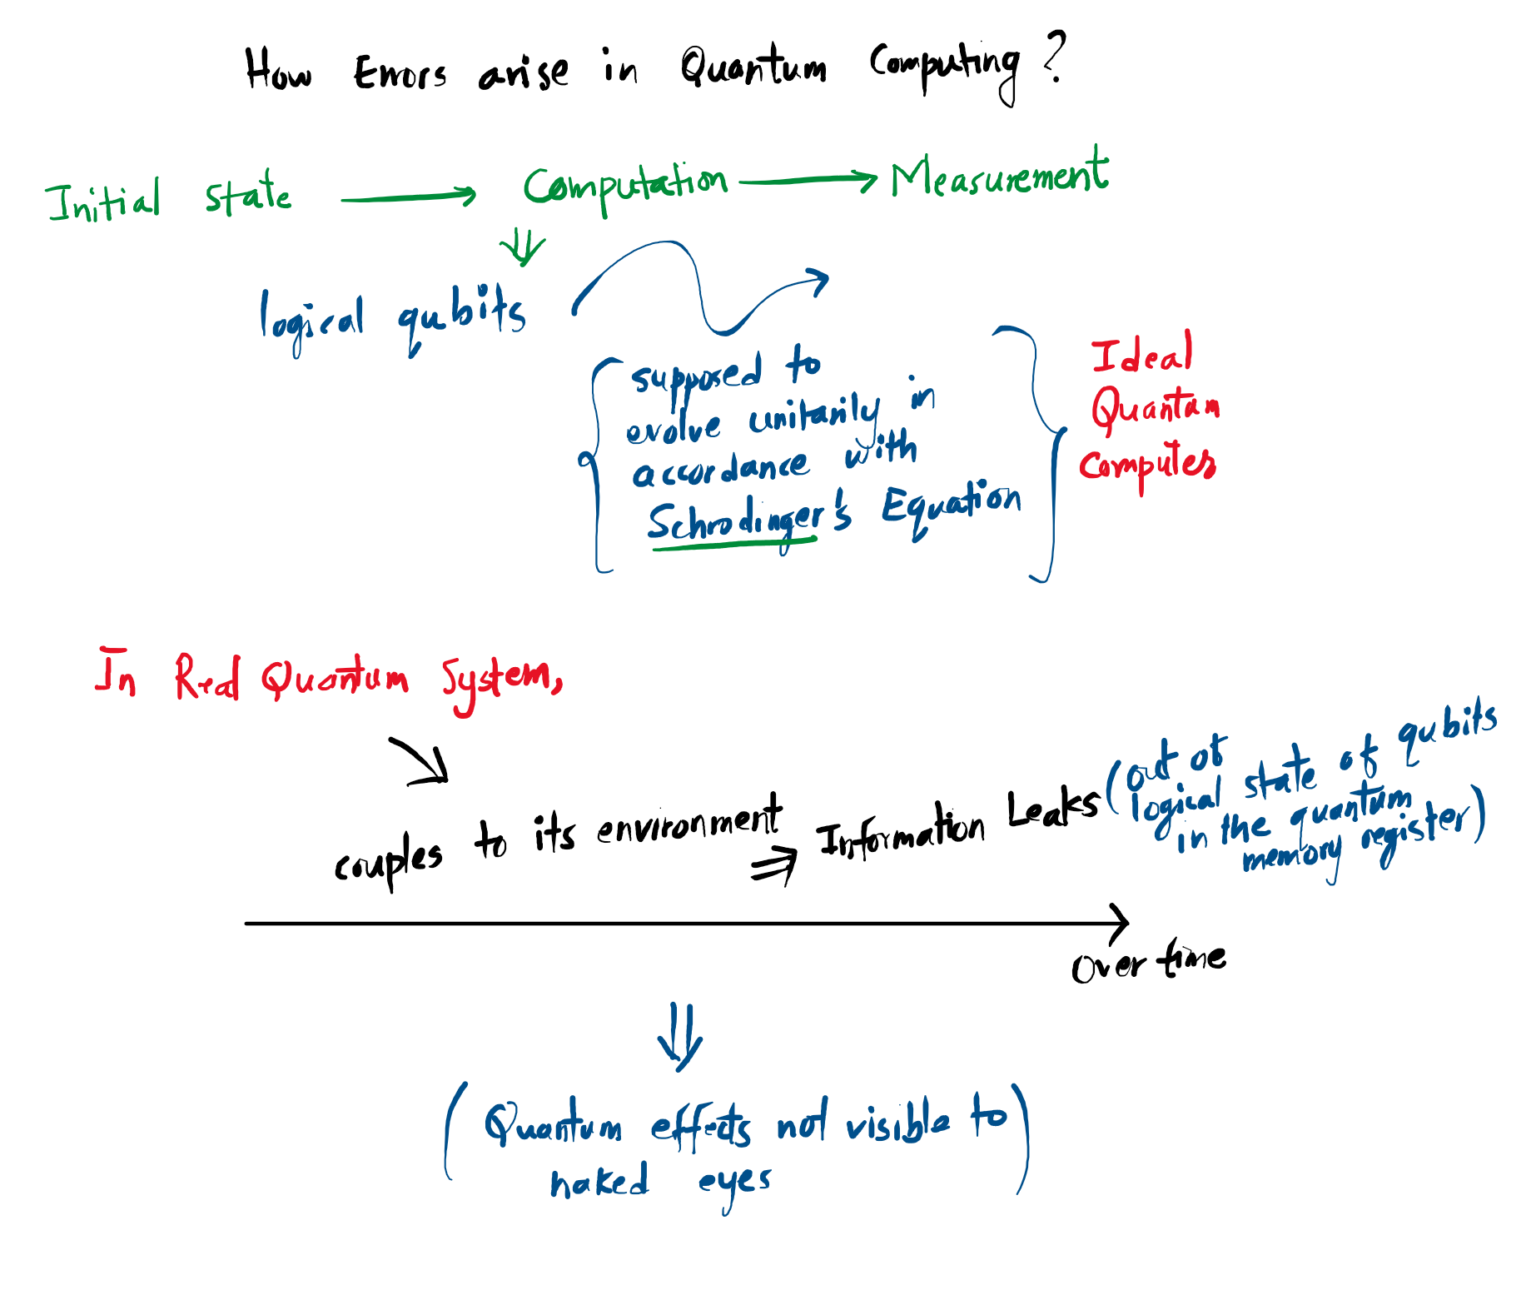 How Errors arise in Quantum Computing?
Initial state → Computation → Measurement
⇓
logical qubits
supposed to
evolve unitarily in
accordance with
Schrodinger's Equation
Ideal
Quantum
Computer
In Real Quantum System,
couples to its environment ⇒ Information Leaks
(out of
logical state of qubits
in the quantum
memory register)
Over time
⇓
(Quantum effects not visible to
naked eyes)